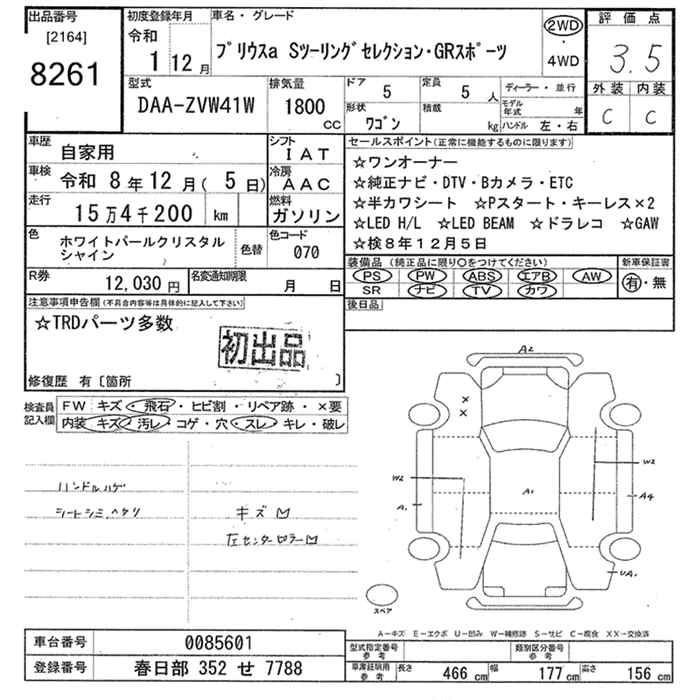 出品番号
[2164]
8261
初度登録年月
令和
1 12 月
車名・グレード
プリウスa Sツーリングセレクション・GRスポーツ
2WD
・
4WD
評価点
3.5
外装 内装
C C
型式
DAA-ZVW41W
排気量
1800 CC
ドア 5
定員 5 人
形状 ワゴン
積載 kg
ディーラー・並行
モデル年式 年
ハンドル 左・右
車歴 自家用
車検 令和 8年 12月( 5日)
走行 15万4千200 km
シフト IAT
冷房 AAC
燃料 ガソリン
セールスポイント(正常に機能するものに限ります)
☆ワンオーナー
☆純正ナビ・DTV・Bカメラ・ETC
☆半カワシート ☆Pスタート・キーレス×2
☆LED H/L ☆LED BEAM ☆ドラレコ ☆GAW
☆検8年12月5日
色 ホワイトパールクリスタル
シャイン
色替
色コード 070
R券 12,030円
名変通知期限 月 日
装備品(純正品に限り○をつけてください)
PS PW ABS エアB AW
SR ナビ TV カワ
新車保証書
有・無
後日品
注意事項申告欄(不具合内容等は具体的に記入して下さい)
☆TRDパーツ多数
初出品
修復歴 有〔箇所 〕
検査員
記入欄
FW キズ・飛石・ヒビ割・リペア跡・×要
内装 キズ・汚レ・コゲ・穴・スレ・キレ・破レ
ハンドルハゲ
シートシミ、ヘタリ
キズ
左センターピラー
A2
×
×
W2
A1
A1
W2
A4
UA1
スペア
A-キズ E-エクボ U-凹み W-補修跡 S-サビ C-腐食 XX-交換済
車台番号 0085601
登録番号 春日部 352 せ 7788
型式指定番号
参考
類別区分番号
参考
車庫証明用
参考
長さ 466 cm 幅 177 cm 高さ 156 cm